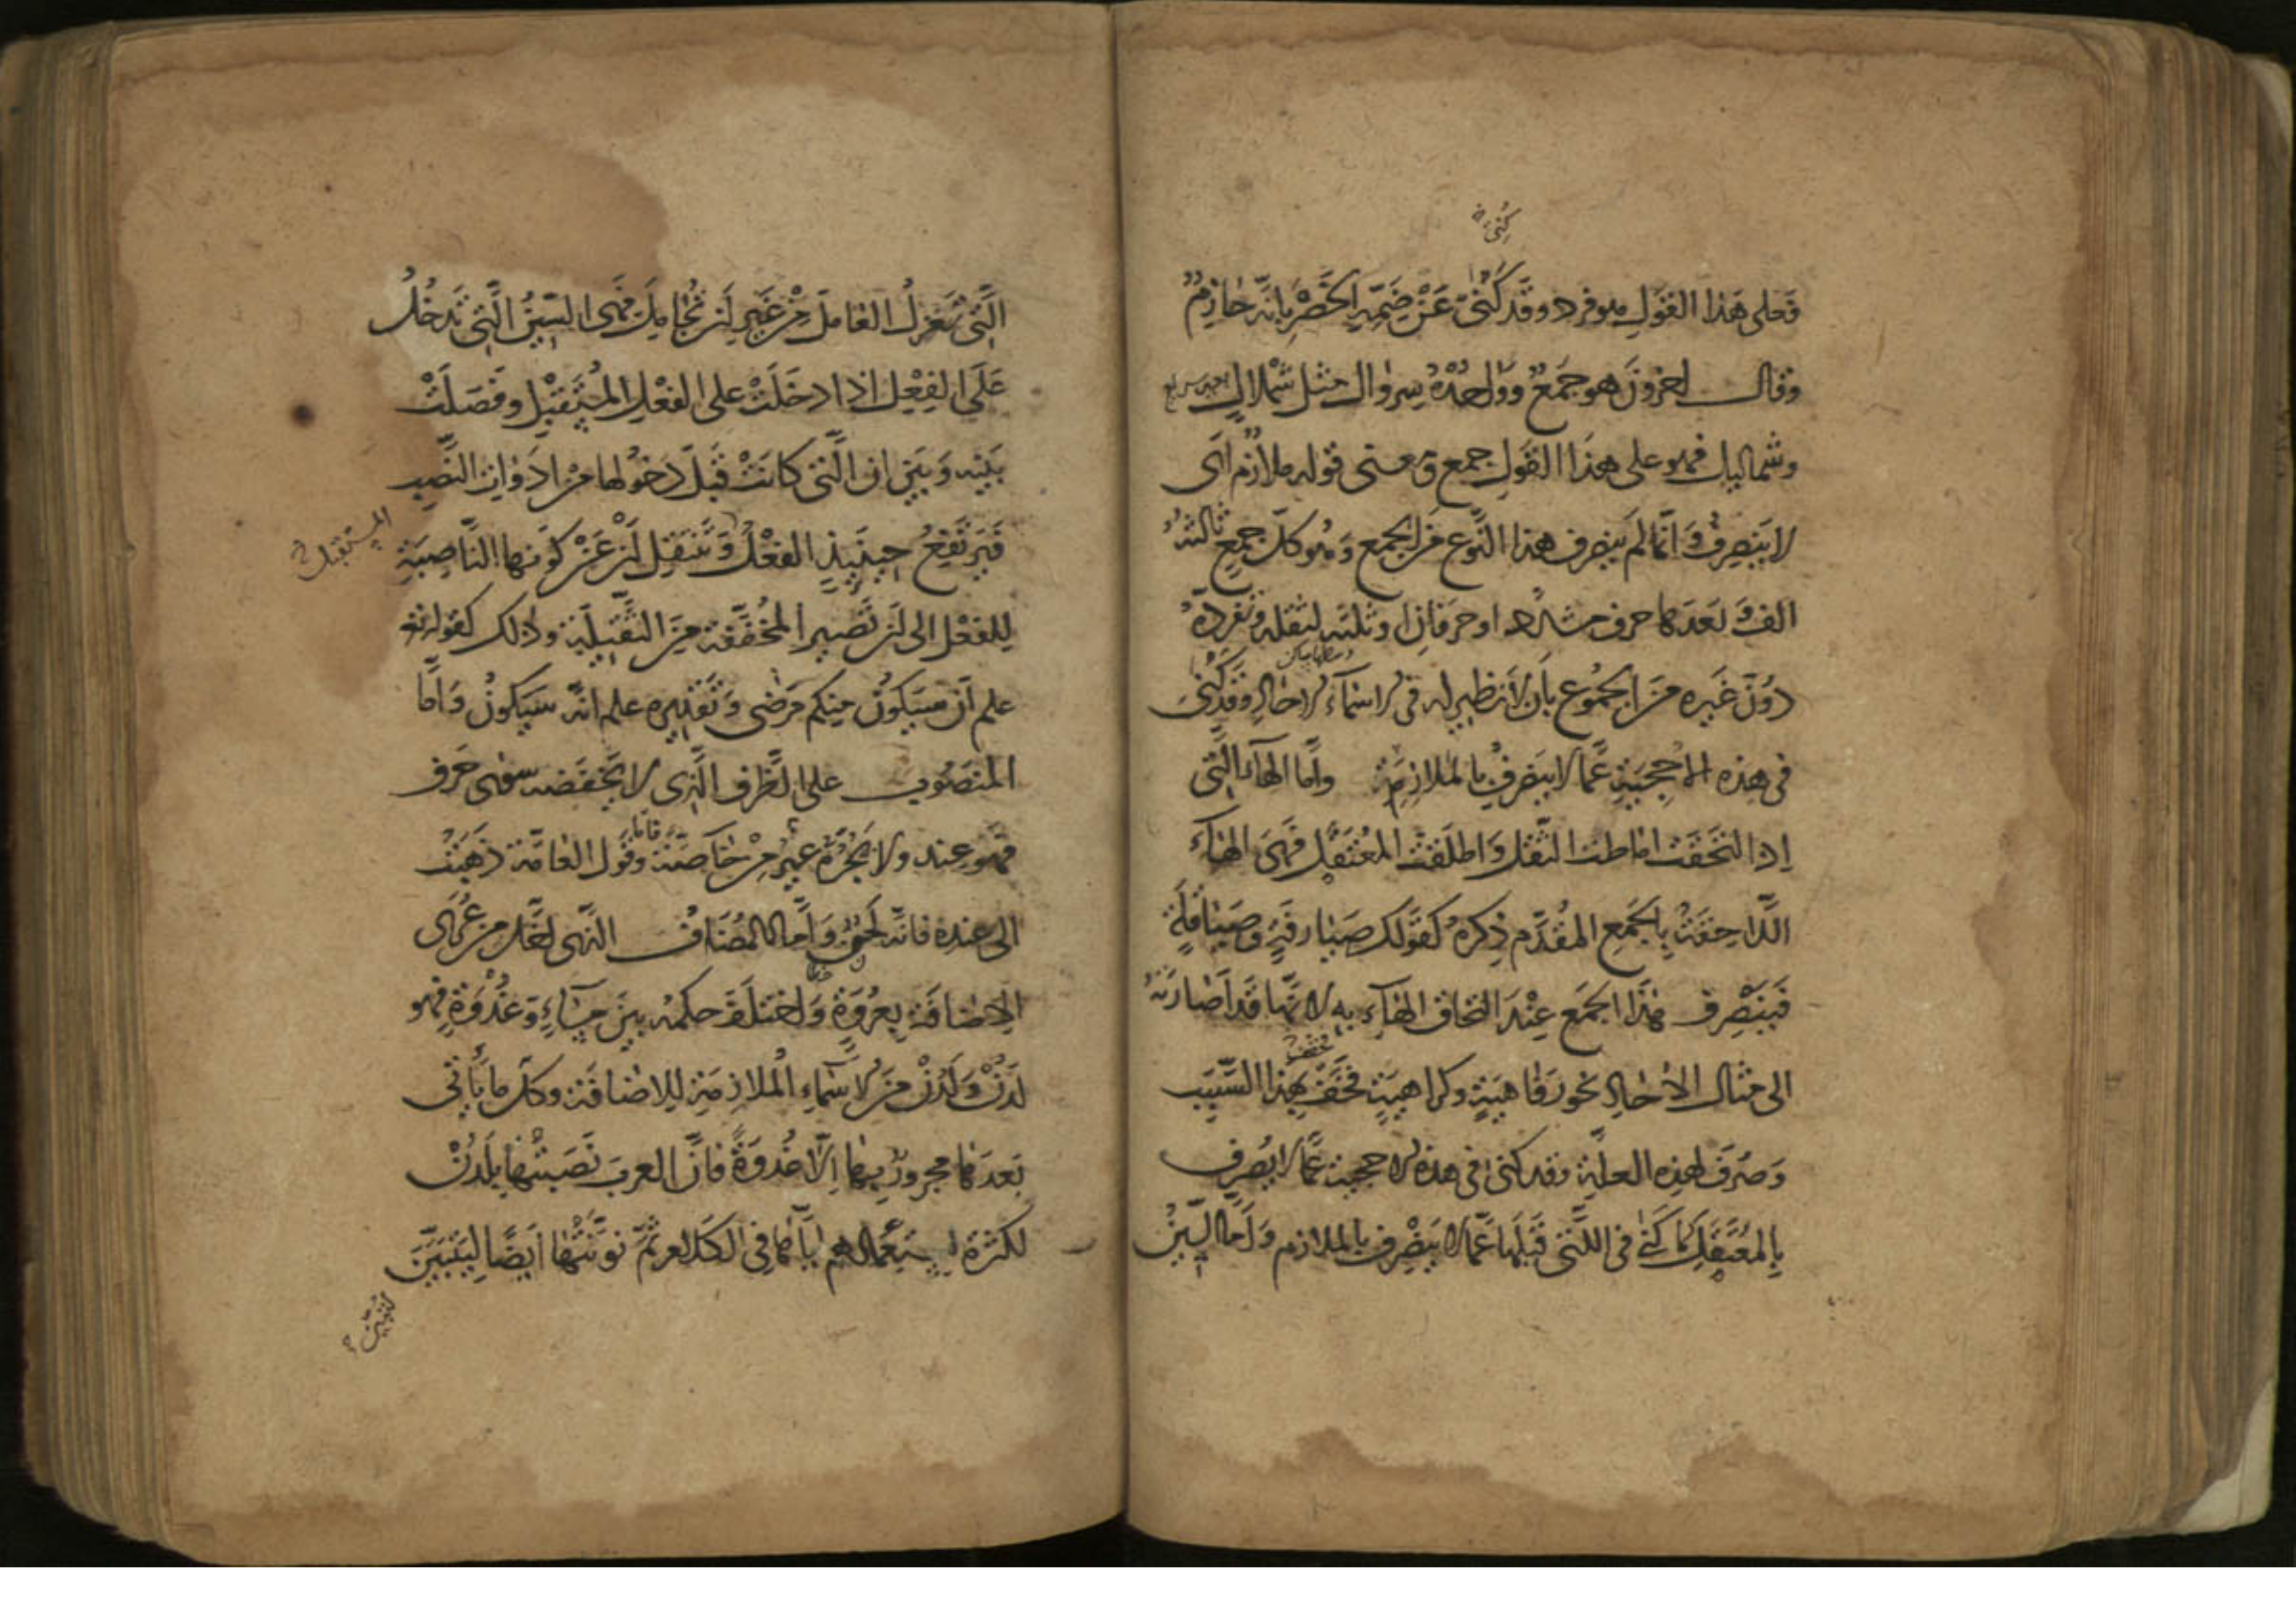 كُنِيَ
فعلى هذا القول هو فرد وقد كنى عن ضمه الخصر بانه حازم
وقال اخرون هو جمع وواحده سروال مثل شملال
وشماليل فهو على هذا القول جمع ومعنى قوله ملازم اى
لا ينصرف وانما لم ينصرف هذا النوع من الجمع وهو كل جمع ثالثه
الف وبعدها حرف مشدد او حرفان او ثلثه لثقله وتفرده
دون غيره من الجموع بان لا نظير له فى الاسماء الاحاد وقد كنى
فى هذه الاحجية عما لا ينصرف بالملازمة واما الهاء التى
اذا التحقت اماطت الثقل واطلقت المعتقل فهى الهاء
اللاحقة بالجمع المقدم ذكره كقولك صيارفة وصياقلة
فينصرف هذا الجمع عند التحاق الهاء به لانها قد اصارته
الى مثال الاحاد نحو رفاهية وكراهية فخف بهذا السبب
وصرف لهذه العلة وقد كنى فى هذه الاحجية عما لا يصرف
بالمعتقل كما كنى فى التى قبلها عما لا ينصرف بالملازم واما السين
التى تعزل العامل من غير ان تجامل فهى السين التى تدخل
على الفعل اذا دخلت على الفعل المستقبل وفصلت
بينه وبين ان التى كانت قبل دخولها من ادوات النصب
فيرتفع حينئذ الفعل وتنتقل ان عن كونها الناصبة
المستقبل
للفعل الى ان تصير المخففة من الثقيلة وذلك كقوله تع
علم ان سيكون منكم مرضى وتقديره علم انه سيكون واما
المنصوب على الظرف الذى لا يخفضه سوى حرف
فهو عند ولا يجره غير من خاصة وقول العامة ذهبت
الى عنده فانه لحن واما المضاف الذى اخل من عرى
الاضافة بعروة واختلف حكمه بين مساء وغدوة فهو
لدن ولدن من الاسماء الملازمة للاضافة وكل ما يأتى
بعدها مجرور بها الا غدوة فان العرب نصبتها بلدن
لكثرة استعمالهم اياها فى الكلام ثم نونتها ايضا ليتبين